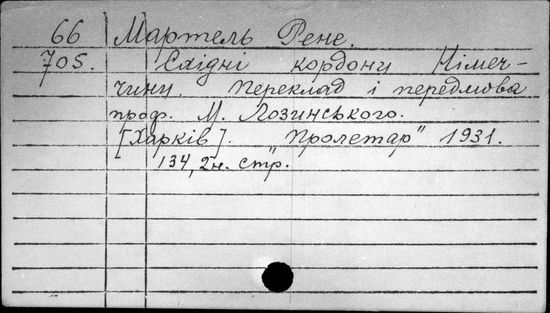 66 Мартель Рене.
705. Східні кордони Німеч-
чини. Переклад і передмова
проф. М. Лозинського.
[Харків]. "Пролетар" 1931.
134, 2н. стр.